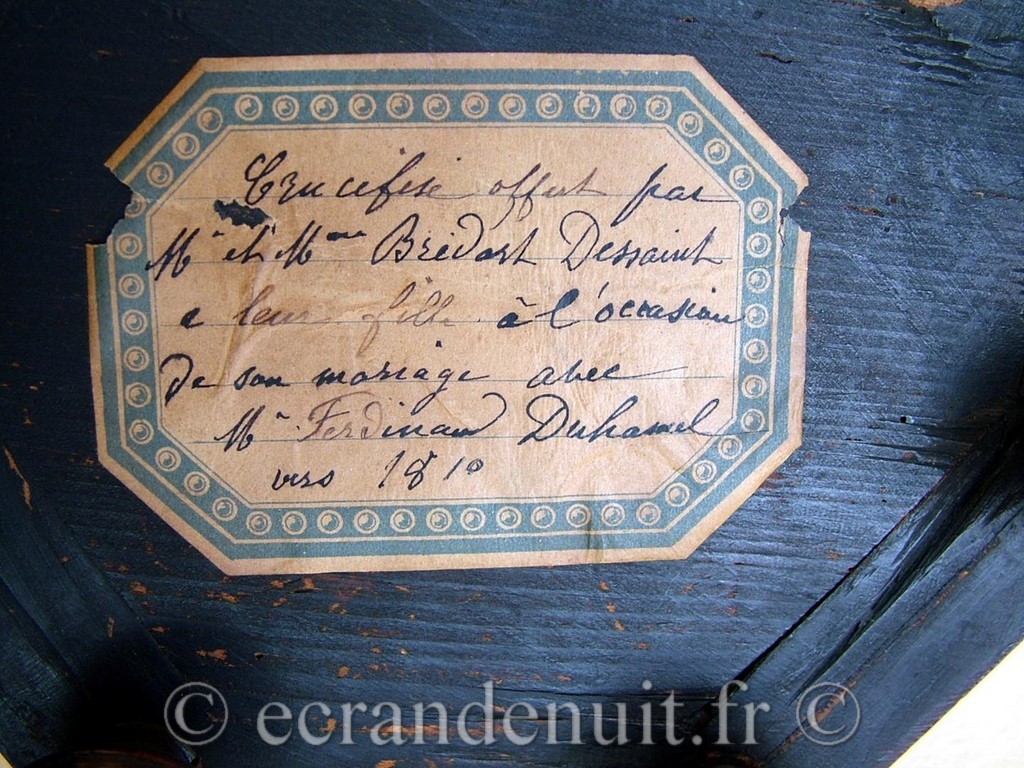 Crucifix offert par
Mr et Mme Brédart Dessaint
a leur fille à l'occasion
De son mariage avec
Mr Ferdinand Duhamel
vers 1810
© ecrandenuit.fr ©